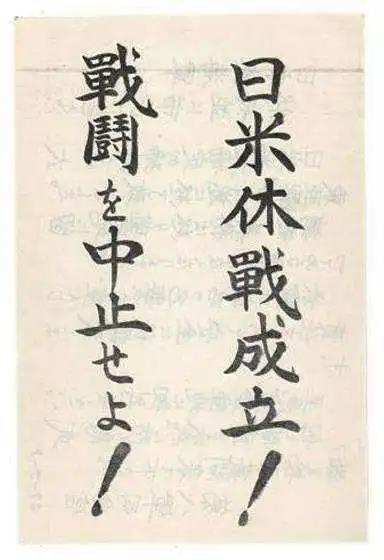 日米休戰成立！
戰鬪を中止せよ！